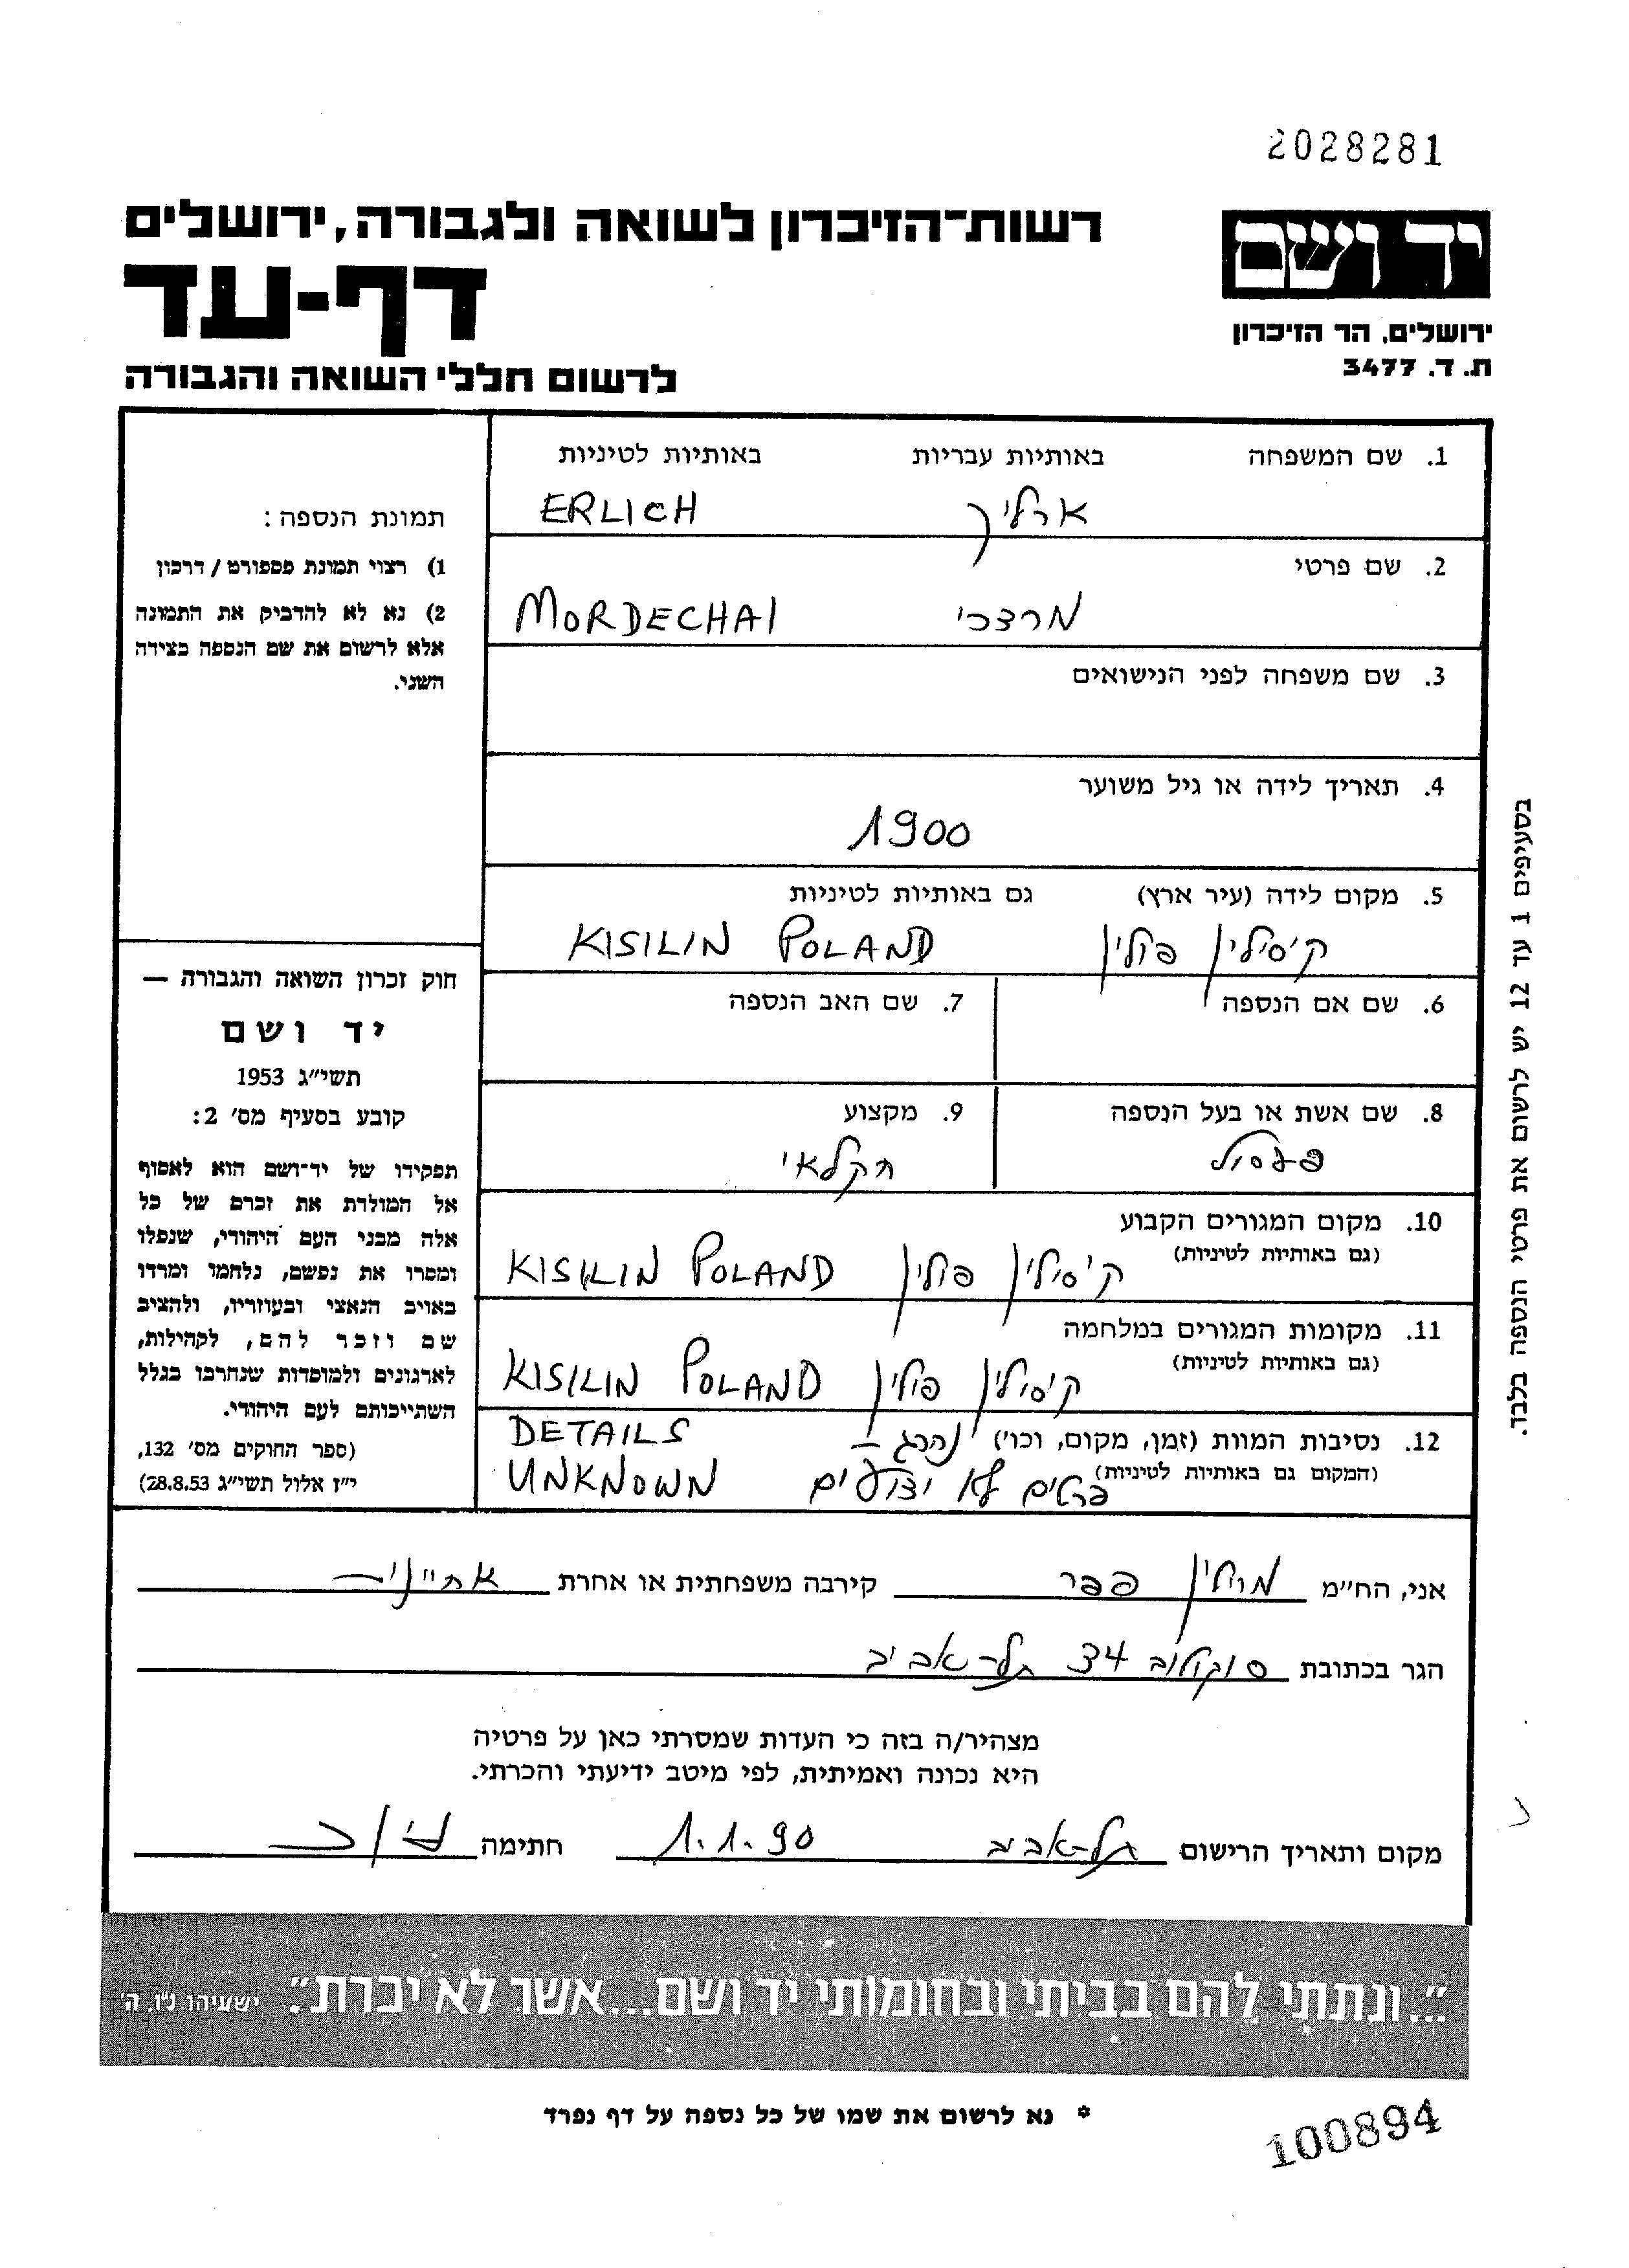 2028281
יד ושם
ירושלים, הר הזיכרון
ת. ד. 3477
רשות־הזיכרון לשואה ולגבורה, ירושלים
דף-עד
לרשום חללי השואה והגבורה
1. שם המשפחה באותיות עבריות באותיות לטיניות
ארליך ERLICH
2. שם פרטי
מרדכי MORDECHAI
3. שם משפחה לפני הנישואים
4. תאריך לידה או גיל משוער
1900
5. מקום לידה (עיר ארץ) גם באותיות לטיניות
קיסילין פולין KISILIN POLAND
6. שם אם הנספה 7. שם האב הנספה
8. שם אשת או בעל הנספה 9. מקצוע
חקלאי
10. מקום המגורים הקבוע
(גם באותיות לטיניות)
קיסילין פולין KISILIN POLAND
11. מקומות המגורים במלחמה
(גם באותיות לטיניות)
קיסילין פולין KISILIN POLAND
12. נסיבות המוות (זמן, מקום, וכו') נהרג – DETAILS
(המקום גם באותיות לטיניות) פרטים לא ידועים UNKNOWN
תמונת הנספה:
1) רצוי תמונת פספורט / דרכון
2) נא לא להדביק את התמונה
אלא לרשום את שם הנספה בצידה
השני.
חוק זכרון השואה והגבורה —
יד ושם
תשי״ג 1953
קובע בסעיף מס' 2:
תפקידו של יד־ושם הוא לאסוף
אל המולדת את זכרם של כל
אלה מבני העם היהודי, שנפלו
ומסרו את נפשם, נלחמו ומרדו
באויב הנאצי ובעוזריו, ולהציב
שם וזכר להם, לקהילות,
לארגונים ולמוסדות שנחרבו בגלל
השתייכותם לעם היהודי.
(ספר החוקים מס' 132,
י״ז אלול תשי״ג 28.8.53)
בסעיפים 1 עד 12 יש לרשום את פרטי הנספה בלבד.
אני, הח״מ פפר קירבה משפחתית או אחרת אחיינית
הגר בכתובת סוקולוב 34 תל-אביב
מצהיר/ה בזה כי העדות שמסרתי כאן על פרטיה
היא נכונה ואמיתית, לפי מיטב ידיעתי והכרתי.
מקום ותאריך הרישום תל-אביב 1.1.90 חתימה
"...ונתתי להם בביתי ובחומותי יד ושם...אשר לא יכרת". ישעיהו נ״ו, ה'
* נא לרשום את שמו של כל נספה על דף נפרד
100894